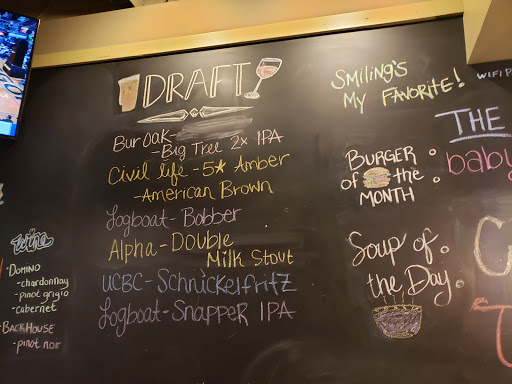 DRAFT
Bur Oak-
-Big Tree 2x IPA
Civil life -5★ Amber
-American Brown
Logboat-Bobber
Alpha-Double
Milk Stout
UCBC-Schnickelfritz
Logboat-Snapper IPA
wine
•Domino
-chardonnay
-pinot grigio
-cabernet
•BackHouse
-pinot noir
Smiling's
My Favorite!
Burger
of the
Month
Soup of
the Day
WIFI P
THE
baby